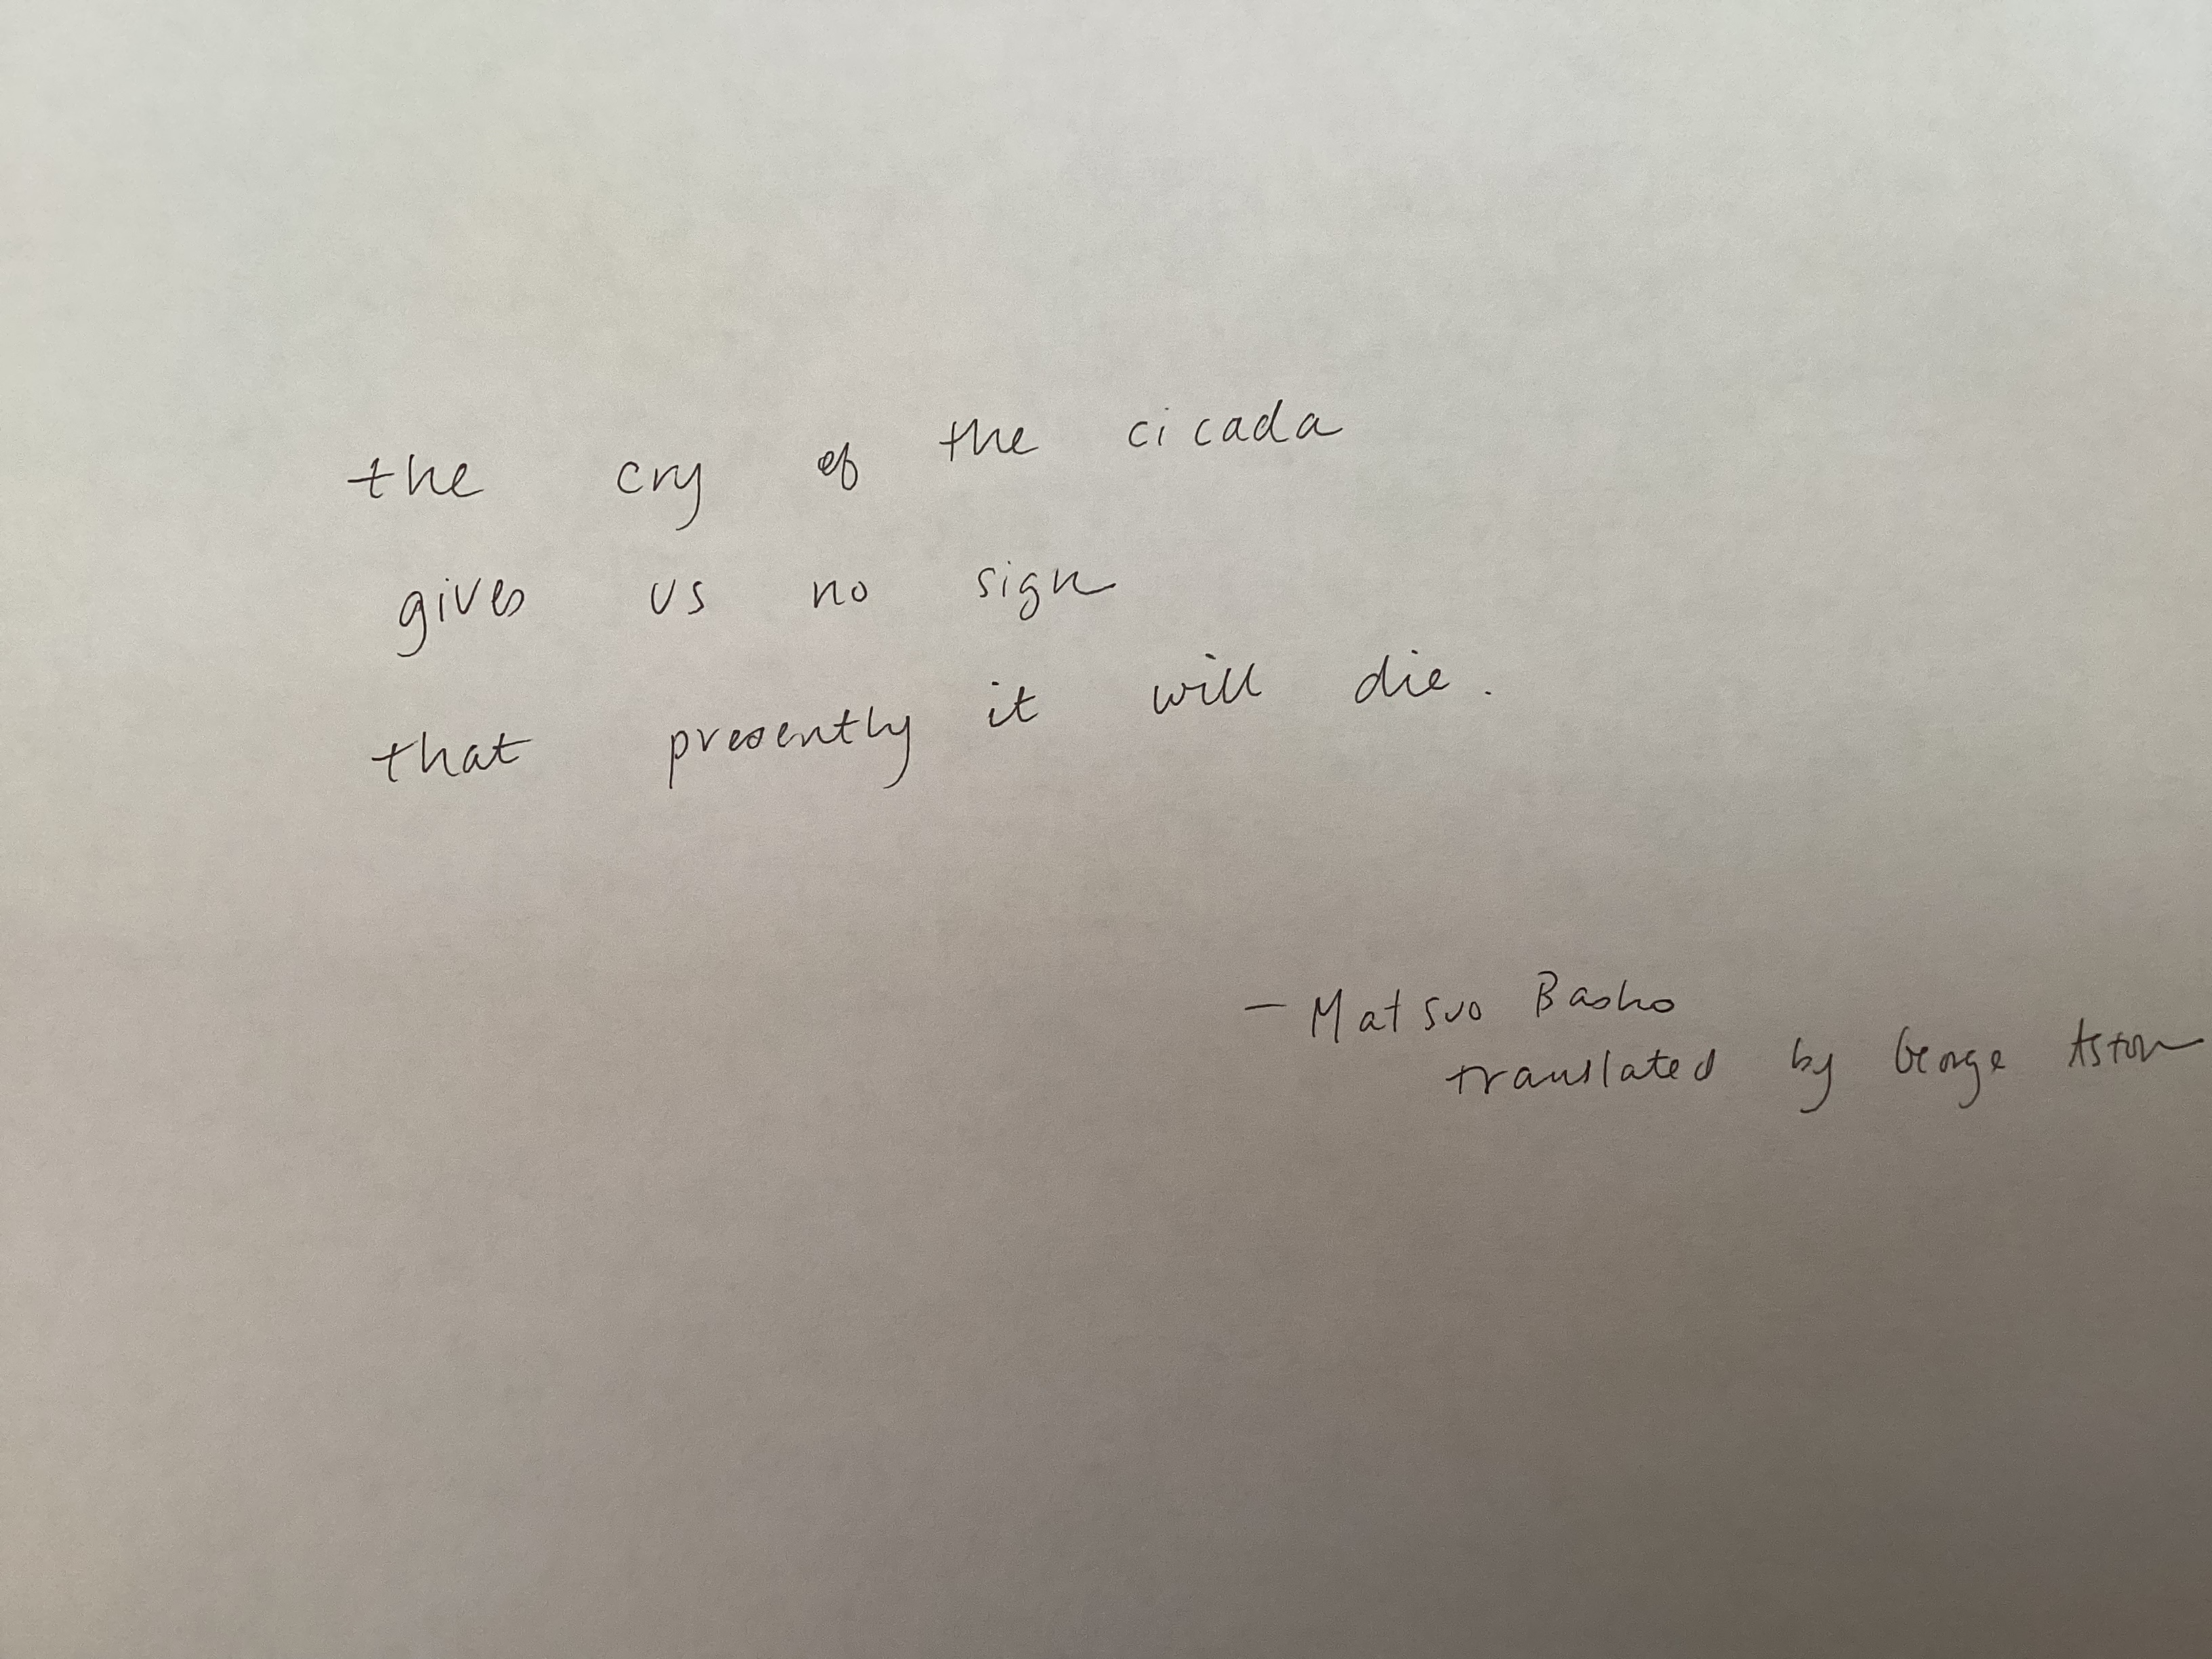 the cry of the cicada
gives us no sign
that presently it will die.
— Matsuo Basho
translated by George Aston